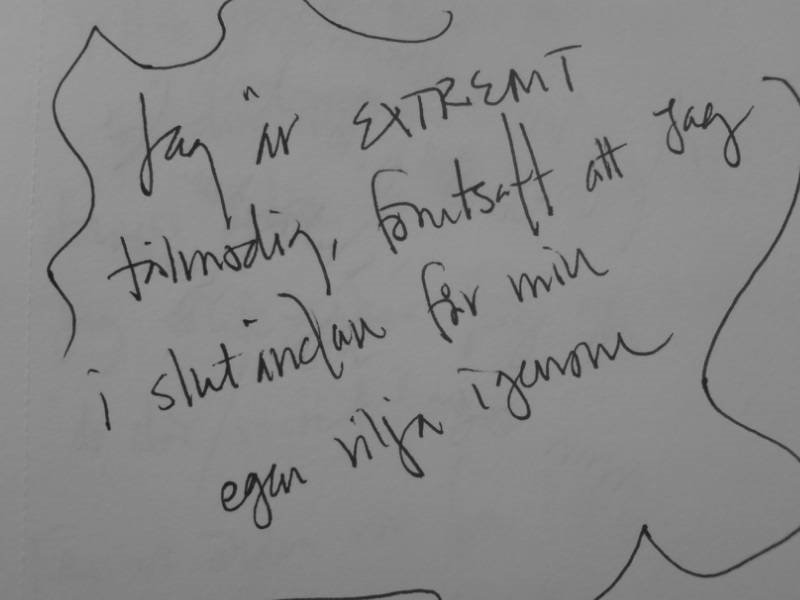 Jag är EXTREMT
tålmodig, förutsatt att jag
i slutändan får min
egen vilja igenom